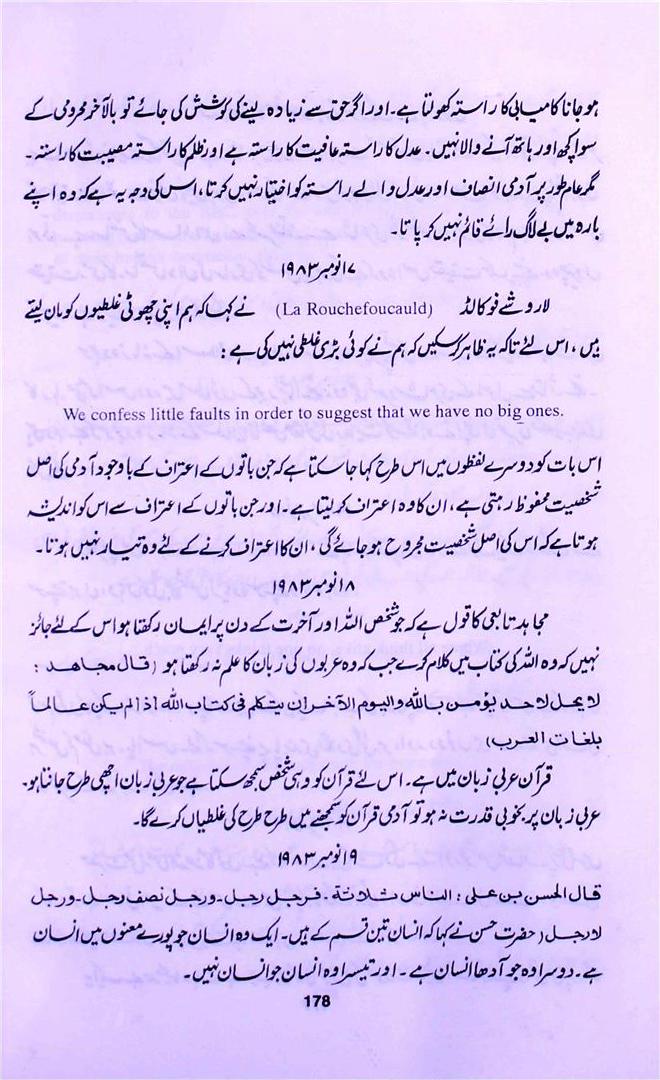 ہو جانا کامیابی کا راستہ کھولتا ہے۔ اور اگر حق سے زیادہ لینے کی کوشش کی جائے تو بالآخر محرومی کے
سوا کچھ اور ہاتھ آنے والا نہیں۔ عدل کا راستہ عافیت کا راستہ ہے اور ظلم کا راستہ مصیبت کا راستہ۔
مگر عام طور پر آدمی انصاف اور عدل والے راستہ کو اختیار نہیں کرتا، اس کی وجہ یہ ہے کہ وہ اپنے
بارہ میں بے لاگ رائے قائم نہیں کر پاتا۔
۱۷ نومبر ۱۹۸۳
لاروشے فوکالڈ (La Rouchefoucauld) نے کہا کہ ہم اپنی چھوٹی غلطیوں کو مان لیتے
ہیں، اس لئے تاکہ یہ ظاہر کر سکیں کہ ہم نے کوئی بڑی غلطی نہیں کی ہے :
We confess little faults in order to suggest that we have no big ones.
اس بات کو دوسرے لفظوں میں اس طرح کہا جا سکتا ہے کہ جن باتوں کے اعتراف کے باوجود آدمی کی اصل
شخصیت محفوظ رہتی ہے، ان کا وہ اعتراف کر لیتا ہے۔ اور جن باتوں کے اعتراف سے اس کو اندیشہ
ہوتا ہے کہ اس کی اصل شخصیت مجروح ہو جائے گی، ان کا اعتراف کرنے کے لئے وہ تیار نہیں ہوتا۔
۱۸ نومبر ۱۹۸۳
مجاہد تابعی کا قول ہے کہ جو شخص اللہ اور آخرت کے دن پر ایمان رکھتا ہو اس کے لئے جائز
نہیں کہ وہ اللہ کی کتاب میں کلام کرے جب کہ وہ عربوں کی زبان کا علم نہ رکھتا ہو (قال مجاهد :
لا يحل لاحد يؤمن بالله واليوم الآخر ان يتكلم فى كتاب الله اذا لم يكن عالماً
بلغات العرب)
قرآن عربی زبان میں ہے۔ اس لئے قرآن کو وہی شخص سمجھ سکتا ہے جو عربی زبان اچھی طرح جانتا ہو۔
عربی زبان پر بخوبی قدرت نہ ہو تو آدمی قرآن کو سمجھنے میں طرح طرح کی غلطیاں کرے گا۔
۱۹ نومبر ۱۹۸۳
قال الحسن بن على : الناس ثلاثة ۔ فرجل رجل۔ ورجل نصف رجل۔ ورجل
لارجل (حضرت حسن نے کہا کہ انسان تین قسم کے ہیں۔ ایک وہ انسان جو پورے معنوں میں انسان
ہے۔ دوسرا وہ جو آدھا انسان ہے۔ اور تیسرا وہ انسان جو انسان نہیں۔
178